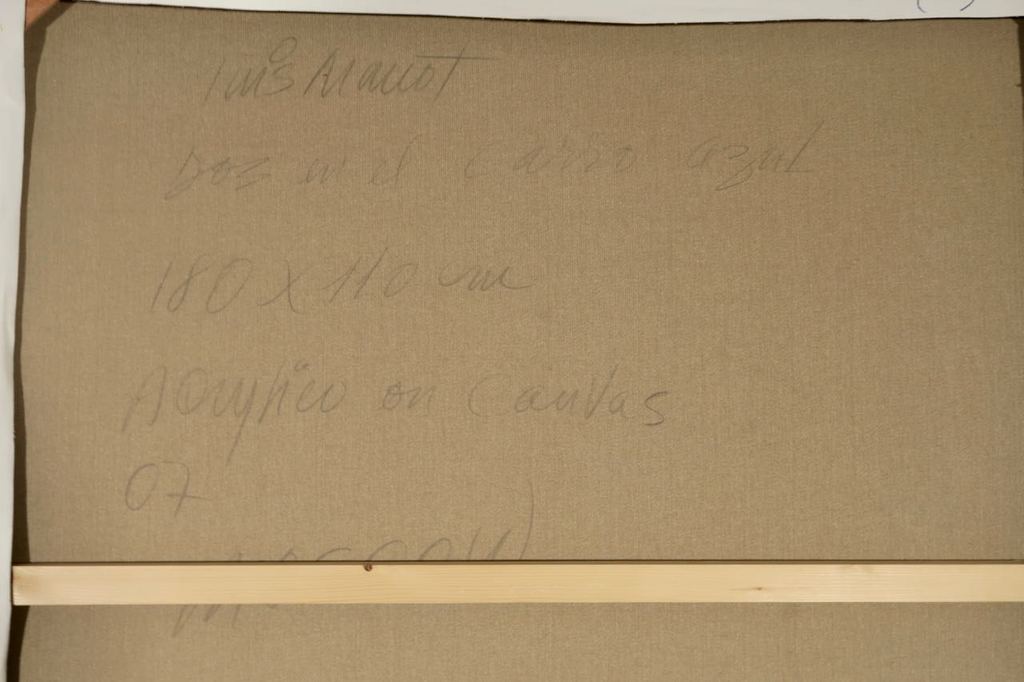 Luis
Dos en el carro azul
180 x 110 cm
Acrylico on Canvas
07